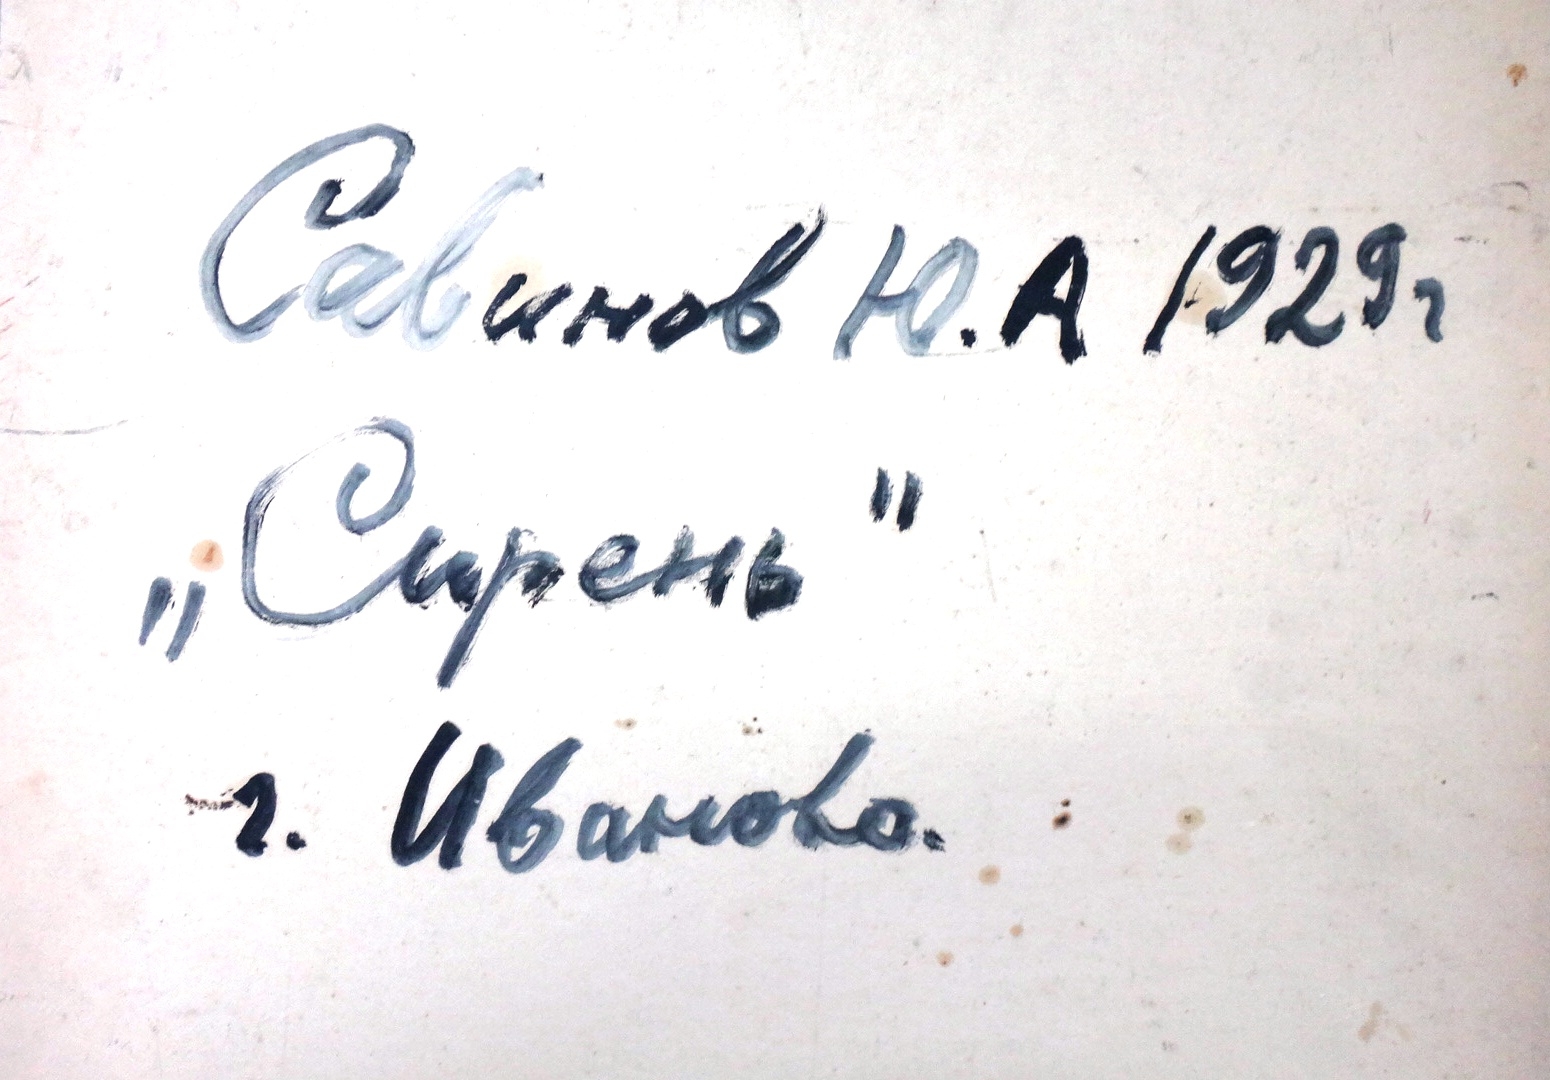 Савинов Ю.А 1929г
„Сирень"
г. Иваново.